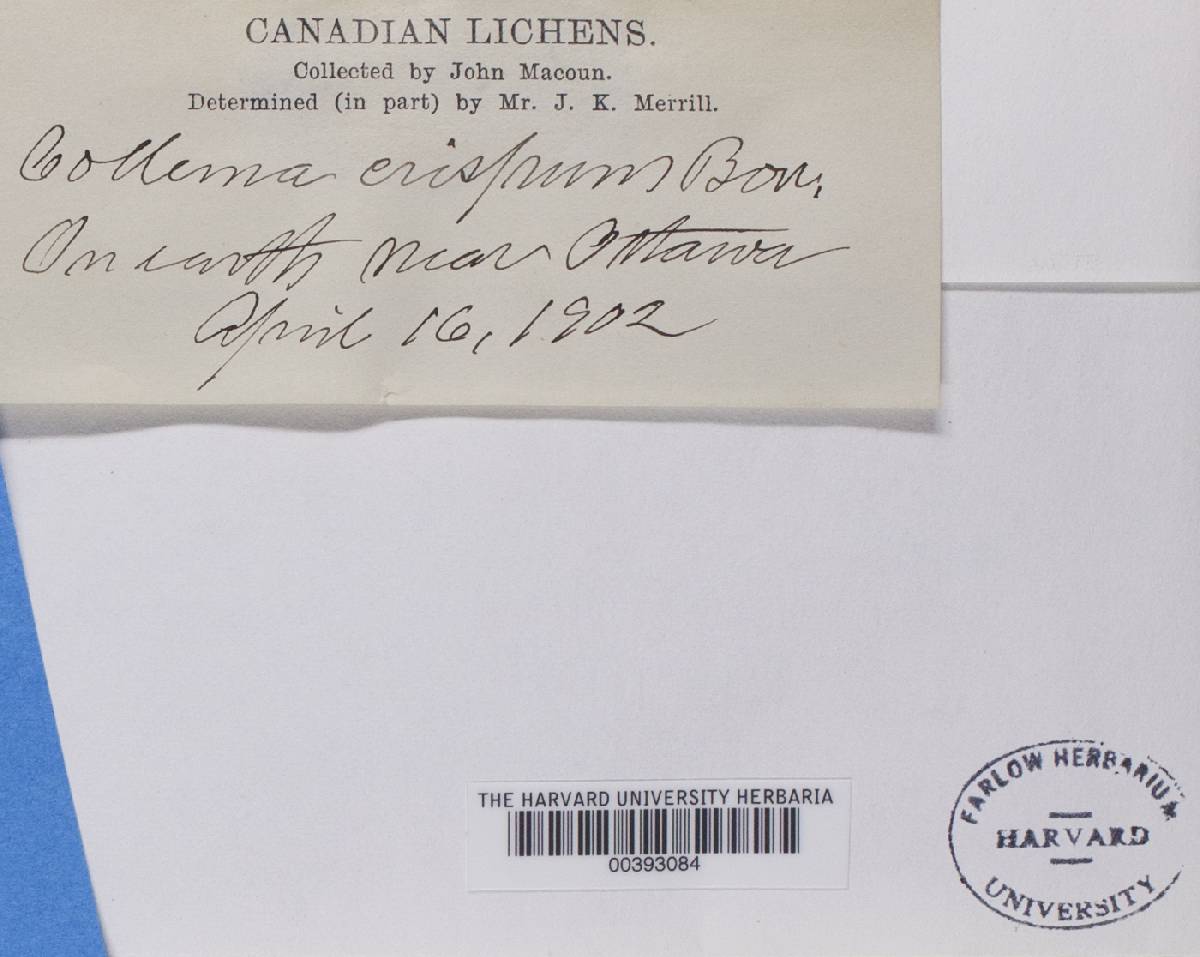 CANADIAN LICHENS.
Collected by John Macoun.
Determined (in part) by Mr. J. K. Merrill.
Collema crispum Borr.
On earth near Ottawa
April 16, 1902
THE HARVARD UNIVERSITY HERBARIA
00393084
FARLOW HERBARIUM
HARVARD
UNIVERSITY